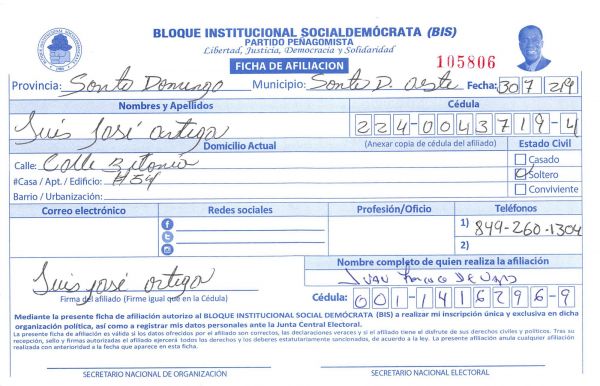 BLOQUE INSTITUCIONAL SOCIALDEMÓCRATA (BIS)
PARTIDO PEÑAGOMISTA
Libertad, Justicia, Democracia y Solidaridad
FICHA DE AFILIACION
105806
Provincia: Santo Domingo Municipio: Santo D. Oeste Fecha: 30 7 219
Nombres y Apellidos Cédula
Luis José Ortega 224-0043719-4
Domicilio Actual (Anexar copia de cédula del afiliado) Estado Civil
Calle: Calle
#Casa / Apt. / Edificio: #54
Barrio / Urbanización:
Casado
Soltero
Conviviente
Correo electrónico Redes sociales Profesión/Oficio Teléfonos
1) 849-260-1304
2)
Luis José Ortega
Firma del afiliado (Firme igual que en la Cédula)
Nombre completo de quien realiza la afiliación
Juan
Cédula: 001-1416296-9
Mediante la presente ficha de afiliación autorizo al BLOQUE INSTITUCIONAL SOCIAL DEMÓCRATA (BIS) a realizar mi inscripción única y exclusiva en dicha
organización política, así como a registrar mis datos personales ante la Junta Central Electoral.
La presente ficha de afiliación es válida si los datos ofrecidos por el afiliado son correctos, las declaraciones veraces y si el afiliado tiene el disfrute de sus derechos civiles y políticos. Tras su
recepción, sello y firmas autorizadas el afiliado ejercerá todos los derechos y los deberes estatutariamente sancionados, de acuerdo a la ley. La presente afiliación anula cualquier afiliación
realizada con anterioridad a la fecha que aparece en esta ficha.
SECRETARIO NACIONAL DE ORGANIZACIÓN SECRETARIO NACIONAL ELECTORAL